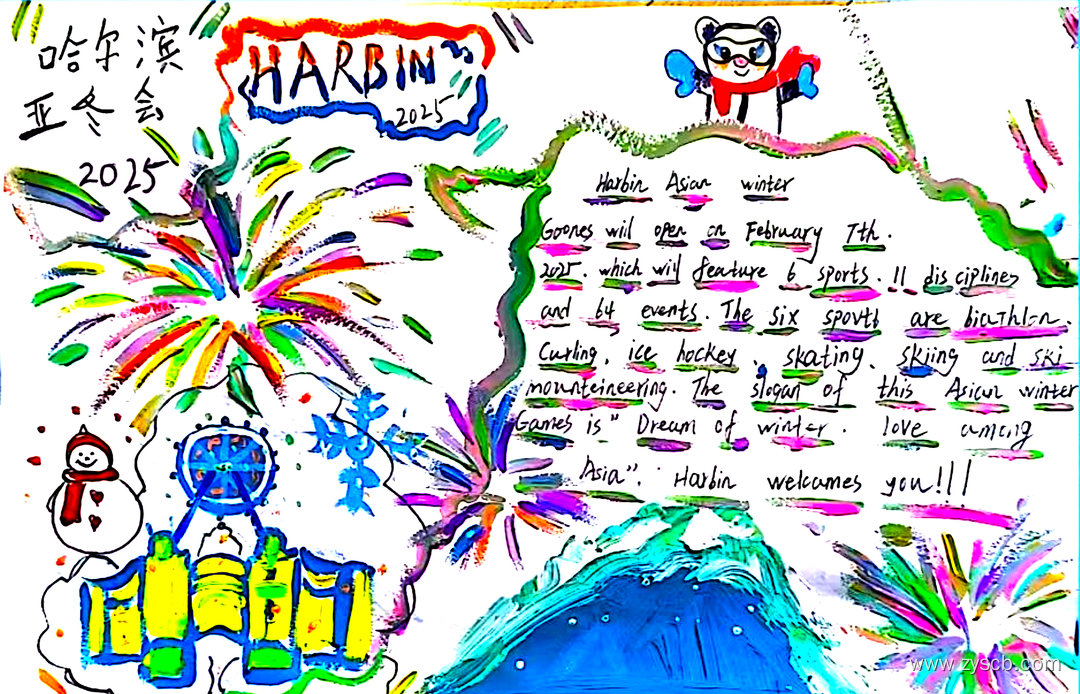 哈尔滨
亚冬会
2025
HARBIN
2025
Harbin Asian winter
Goones will open on February 7th.
2025. which will feature 6 sports. 11 disciplines
and 64 events. The six spovts are biathlon.
Curling, ice hockey, skating, skjing and ski
mounteineering. The slogan of this Asian winter
Games is "Dream of winter. love among
Asia". Harbin welcomes you!!!
www.zyscb.com